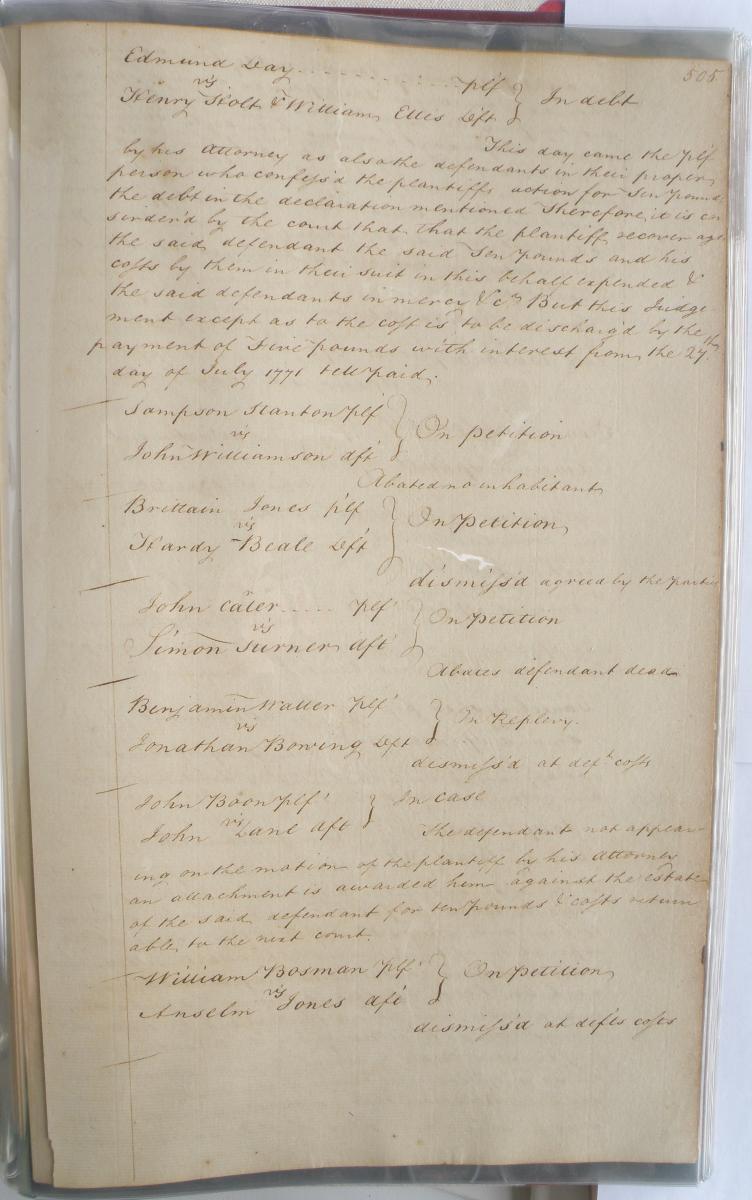 505
Edmund Day . . . . . . . . . . plf
vs
In debt
Henry Holt & William Ellis Dft
This day came the plf
by his Attorney as also the defendants in their proper
person who confess'd the plantiffs action for Ten pounds
the debt in the declaration mentioned Therefore it is con
sirder'd by the court that, that the plantiff recover agt
the said defendant the said Ten pounds and his
costs by them in their suit in this behalf expended &
the said defendants in mercy &c. But this Judge-
ment except as to the cost is to be discharg'd by the
payment of Five pounds with interest from the 27th
day of July 1771 till paid.
Sampson Stanton plf
vs
On petition
John Williamson dft
Abated no inhabitant
Brittain Jones plf
vs
On Petition
Hardy Beale Dft
dismiss'd agreed by the parties
John Cater ..... plf
vs
On Petition
Simon Turner dft
Abates defendant dead
Benjamin Waller plf
vs
In Replevy.
Jonathan Bowing Dft
dismiss'd at deft costs
John Boon plf
vs
In case
John Lane dft
The defendant not appear-
ing on the motion of the plantiff by his Attorney
an attachment is awarded him against the estate
of the said defendant for ten pounds & costs return
able to the next court.
William Bosman plf
vs
On Petition
Anselm Jones dft
dismiss'd at defts costs